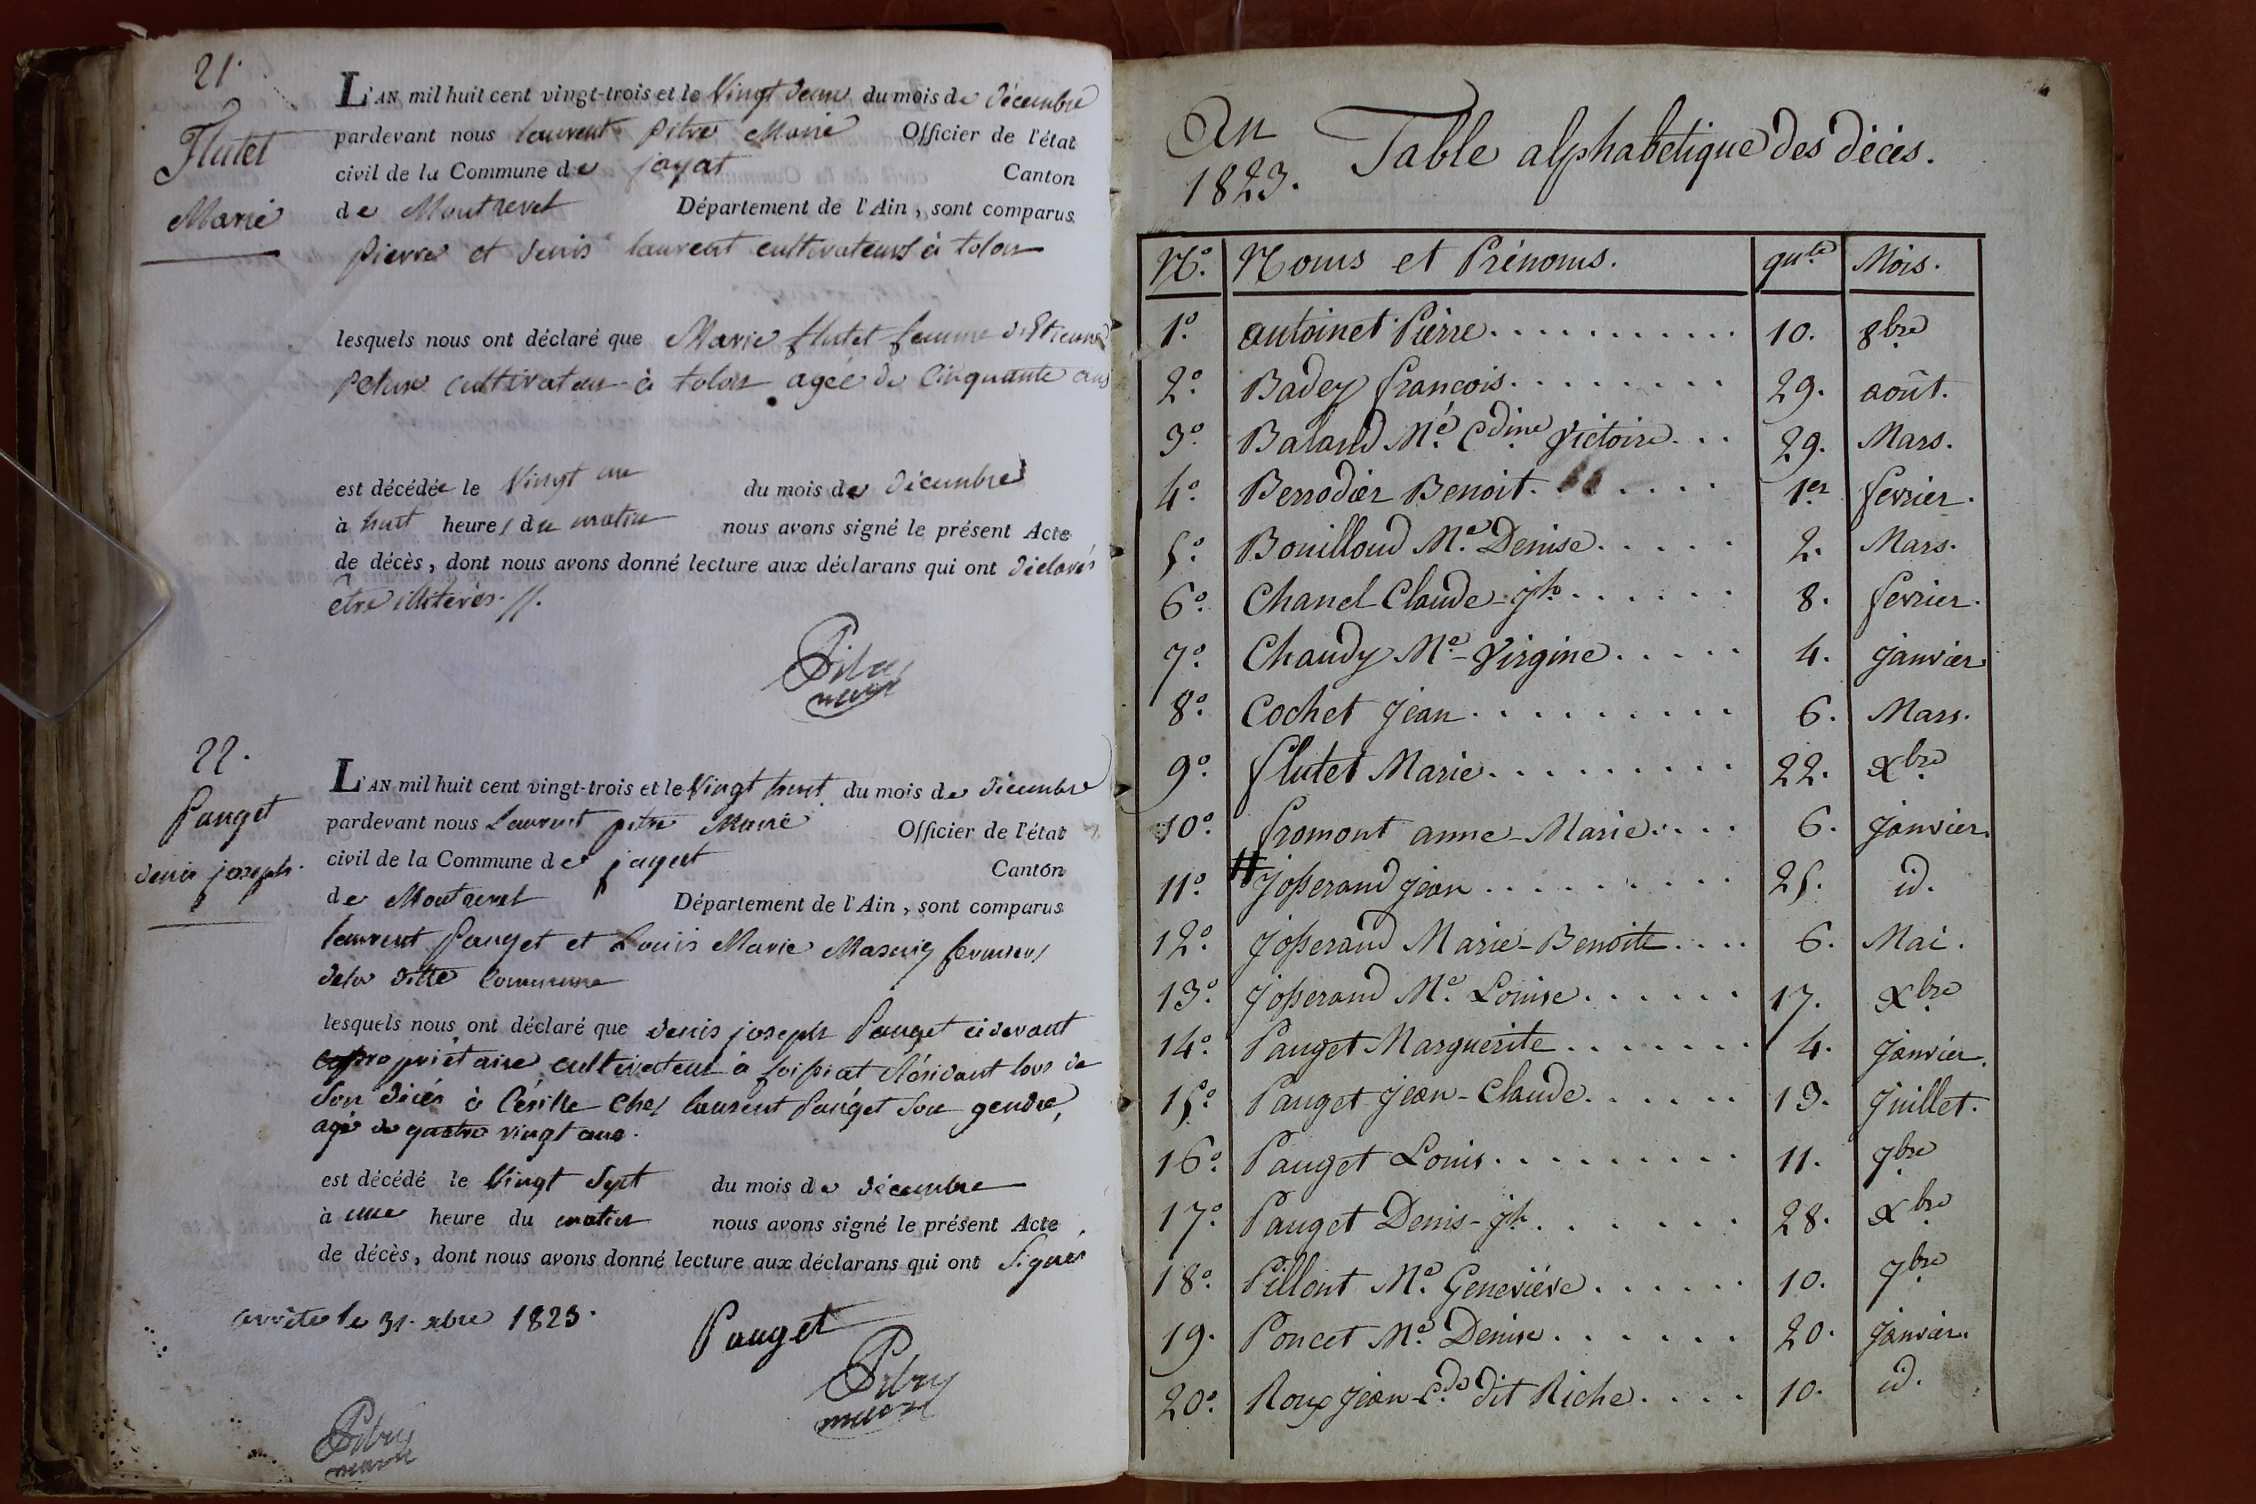 21.
Flutet
Marie
L'AN mil huit cent vingt-trois et le Vingt deux du mois de décembre
pardevant nous laurent pitre Maire Officier de l'état
civil de la Commune de jayat Canton
de Montrevel Département de l'Ain, sont comparus
pierre et denis laurent cultivateurs à tolon
lesquels nous ont déclaré que Marie flutet femme d'Etienne
cultivateur à tolon agée de Cinquante ans
est décédée le Vingt un du mois de décembre
à huit heures du matin nous avons signé le présent Acte
de décès, dont nous avons donné lecture aux déclarans qui ont déclarés
être illiterés.
Pitre
maire
22.
Pauget
denis joseph.
L'AN mil huit cent vingt-trois et le Vingt huit du mois de décembre
pardevant nous Laurent pitre Maire Officier de l'état
civil de la Commune de jayat Canton
de Montrevel Département de l'Ain, sont comparus
laurent Pauget et Louis Marie fermiers
de la ditte Commune
lesquels nous ont déclaré que denis joseph Pauget cidevant
propriétaire cultivateur à foissiat Résidant lors de
son décés à Césille chez laurent Pauget son gendre,
agé de quatre vingt ans.
est décédé le Vingt Sept du mois de décembre
à une heure du matin nous avons signé le présent Acte
de décès, dont nous avons donné lecture aux déclarans qui ont signés
arrêté le 31. xbre 1823.
Pauget
Pitre
maire
Pitre
maire
An
1823. Table alphabetique des décés.
N.o Noms et Prénoms. qnte Mois.
1o antoinet Pierre........... 10. 8bre
2o Badey françois......... 29. août.
3o Baland Me Cdine Victoire... 29. Mars.
4o Berrodier Benoit....... 1er fevrier.
5o Bouilloud Me Denise..... 2. Mars.
6o Chanel Claude-jh....... 8. fevrier.
7o Chaudy Me-Virgine..... 4. janvier
8o Cochet jean.......... 6. Mars.
9o flutet Marie.......... 22. xbre
10o fromont anne-Marie.... 6. janvier.
11o # josserand jean.......... 25. id.
12o josserand Marie-Benoite.... 6. Mai.
13o josserand Me Louise....... 17. xbre
14o Pauget Marguerite....... 4. janvier.
15o Pauget jean-Claude...... 13. juillet.
16o Pauget Louis.......... 11. 7bre
17o Pauget Denis-jh....... 28. xbre
18o Pillout Me Geneviéve...... 10. 7bre
19. Poncet Me Denise....... 20. janvier.
20o Roux jean-Cde dit Riche.... 10. id.